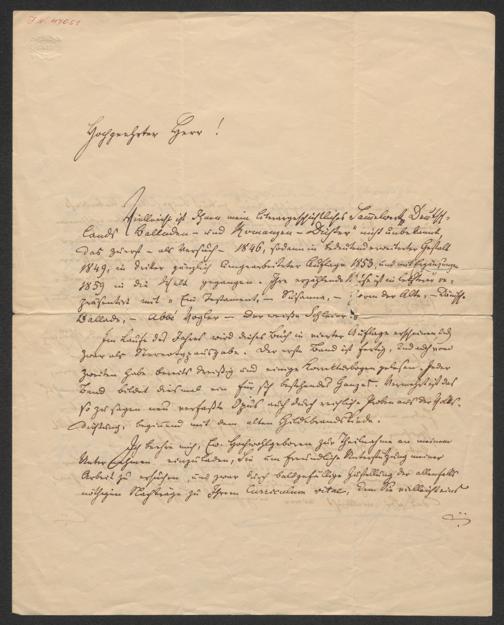 Hochgeehrter Herr!
Vielleicht ist Ihnen mein literargeschichtliches Sammelwerk „Deutsch-
lands Balladen- und Romanzen-Dichter" nicht unbekannt,
das zuerst – als Versuch – 1846, sodann in bedeutend erweiterter Gestalt
1849, in dritter gänzlich umgearbeiteter Auflage 1853, und mit Ergänzungen
1859 in die Welt gegangen. Ihre erzählende ist in letzterer re-
präsentirt mit „Ein Testament, – Susanna, – der Alte, –
Ballade, – Abbé Vogler – Der weiße
Im Laufe des Jahres wird dieses Buch in vierter Auflage erscheinen und
zwar als Stereotypausgabe. Der erste Band ist fertig, und auch vom
zweiten habe bereits dreißig und einige Korrekturbogen gelesen. Jeder
Band bildet diesmal ein für sich bestehendes Ganzes. Vermehrt ist das
so zu sagen neu verfaßte Opus auch durch reichliche Proben aus der Volks-
dichtung, beginnend mit dem alten Hildebrandsliede.
Ich beehre mich, Ew. Hochwohlgeboren zur Theilnahme an meinem
Unternehmen einzuladen, Sie um freundliche Unterstützung meiner
Arbeit zu ersuchen, und zwar durch baldgefällige Zustellung der allenfalls
nöthigen Nachträge zu Ihrem Curriculum vitae, dem Sie vielleicht eine